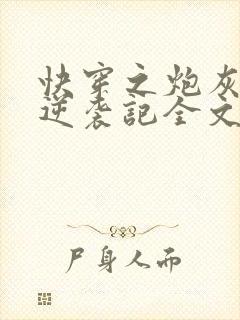 快穿之炮灰
逆袭記全文
尸身人而